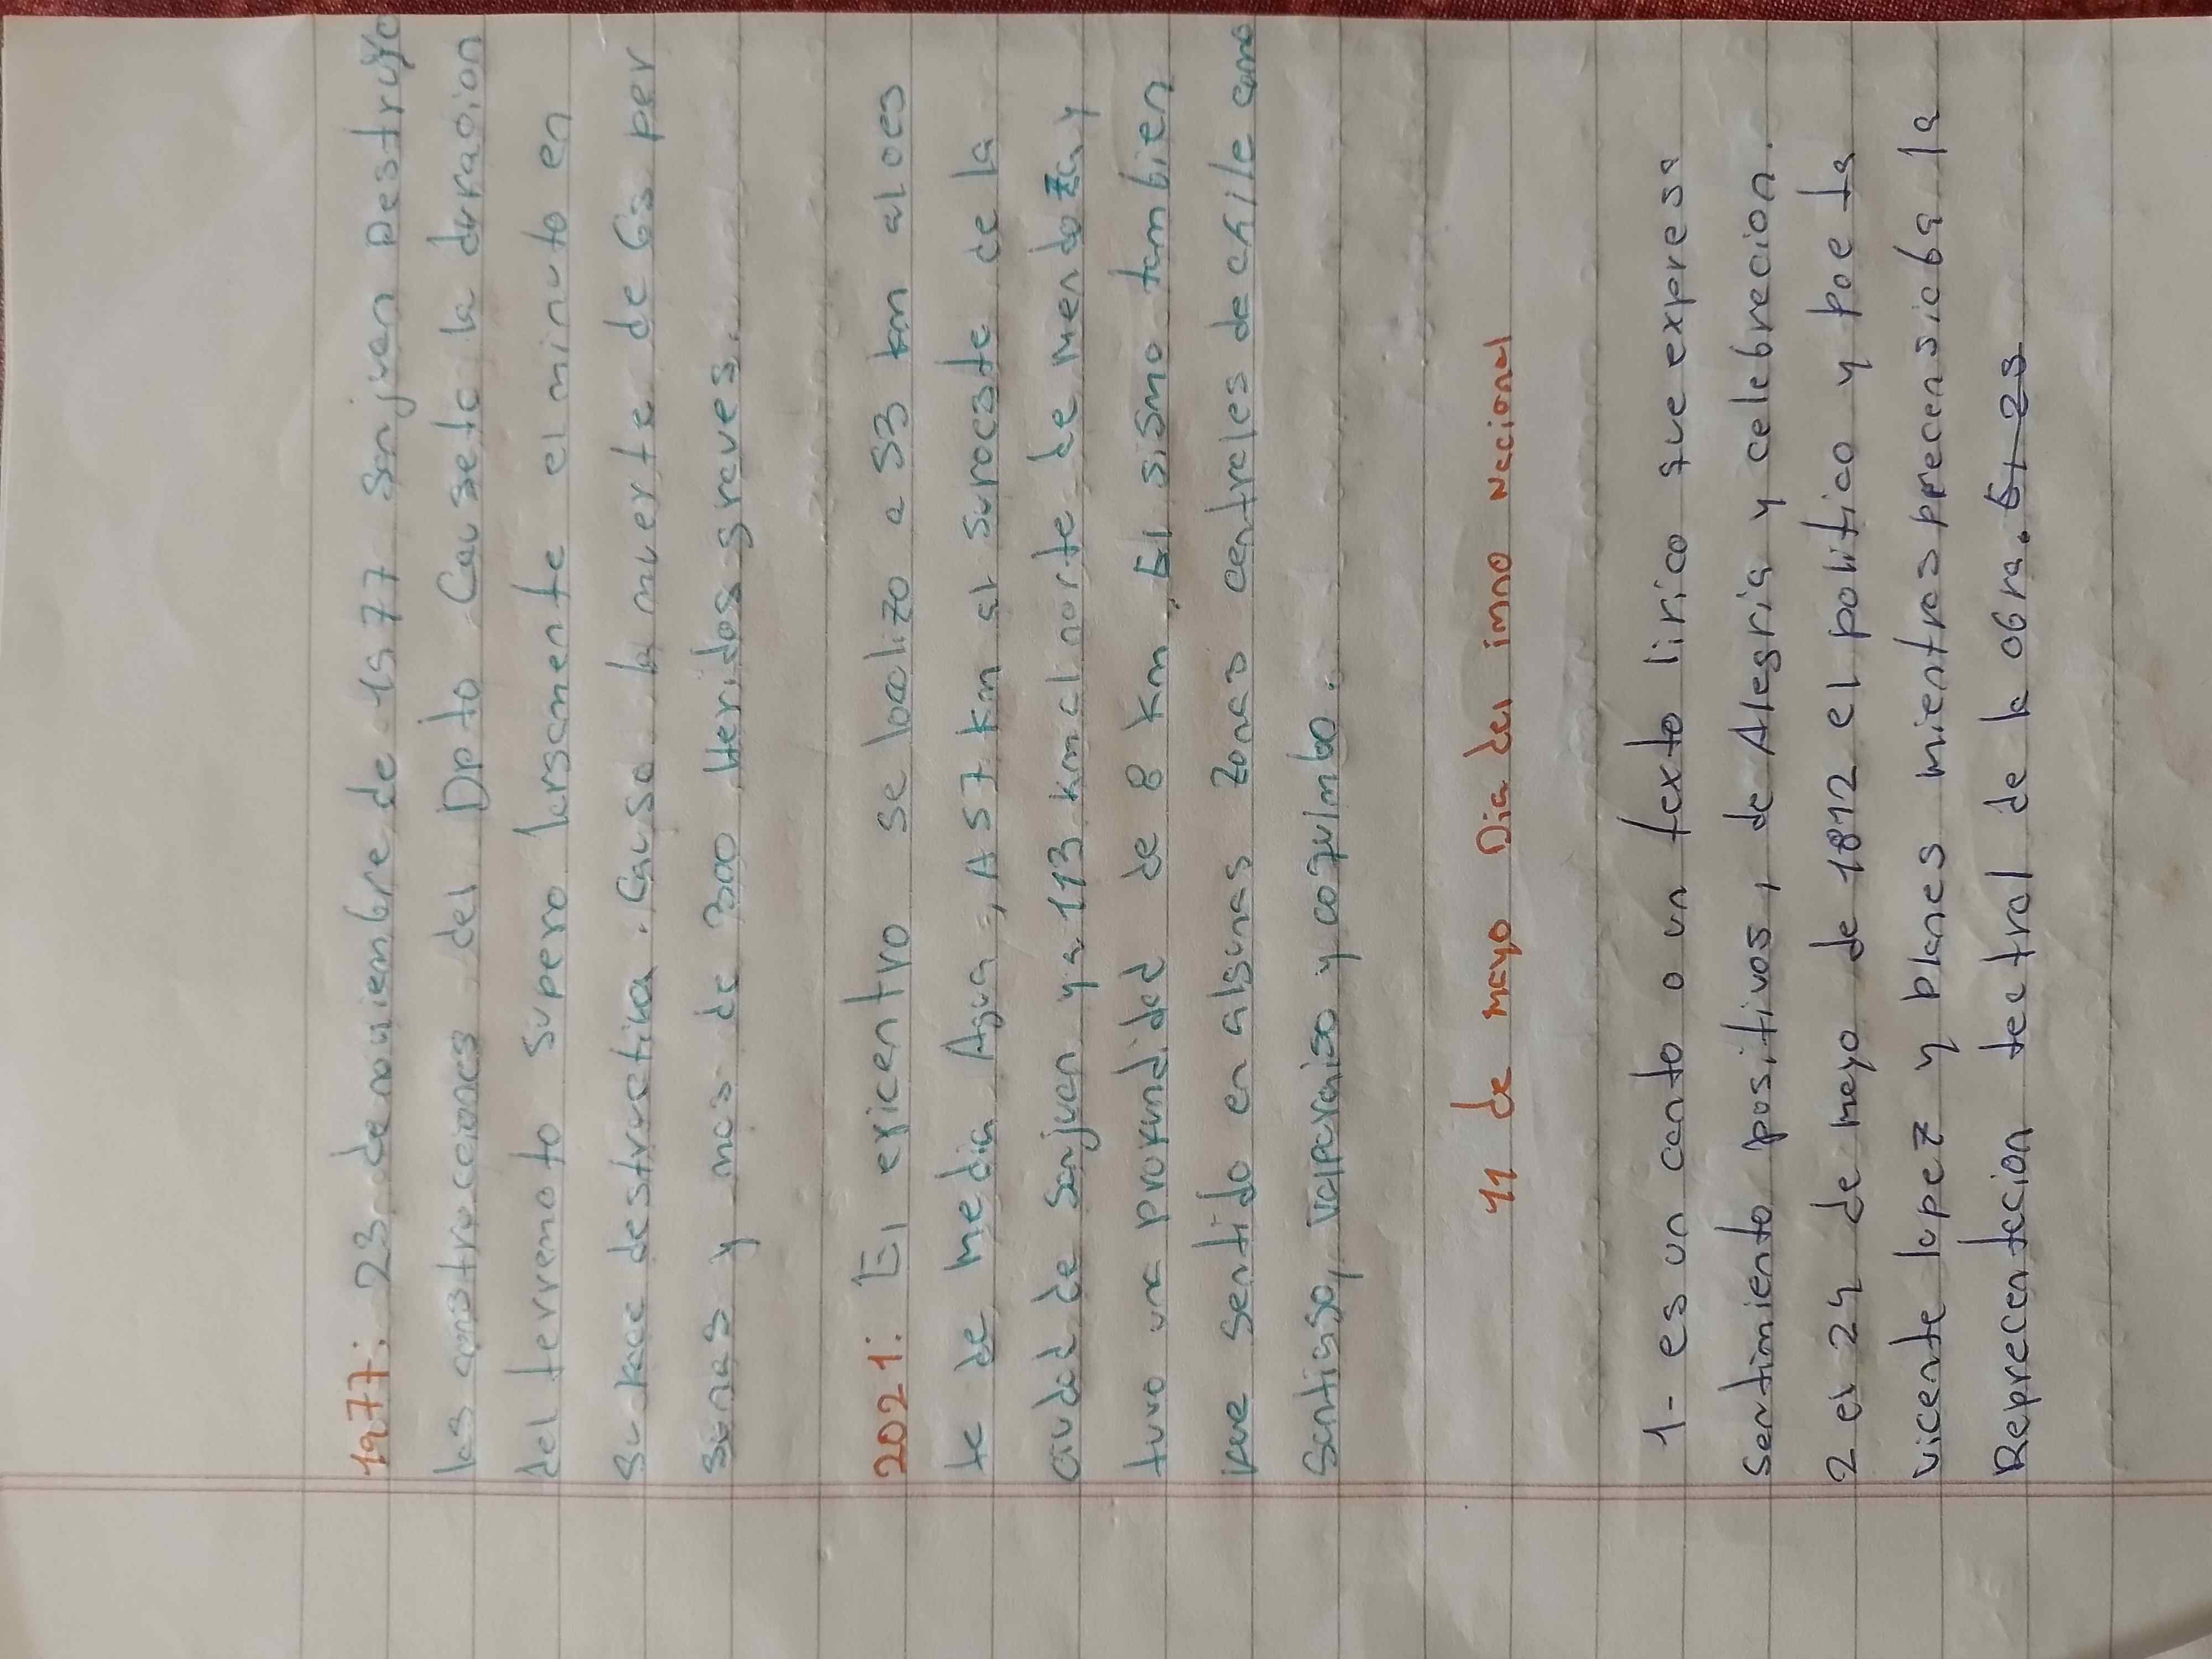 1977: 23 de noviembre de 1977 Sanjuan Destruyo
las construcciones del Dpto Causete la duracion
del terremoto supero largamente el minuto en
su fase destructiva. Causo la muerte de 65 per
sonas y mas de 300 Heridos graves.
2021: El epicentro se localizo a 53 km al oes
te de Media Agua, A 57 km al suroeste de la
ciudad de Sanjuan y a 113 km al norte de Mendoza y
tuvo una profundidad de 8 km. El sismo tambien
fue sentido en algunas zonas centrales de chile como
Santiago, Valparaiso y coquimbo.
11 de mayo Dia del imno Nacional
1- es un canto o un texto lirico que expresa
Sentimiento positivos, de Alegria y celebracion.
2 el 24 de mayo de 1812 el politico y poeta
vicente lopez y planes mientras precensiaba la
Reprecentacion teatral de la obra. El 25